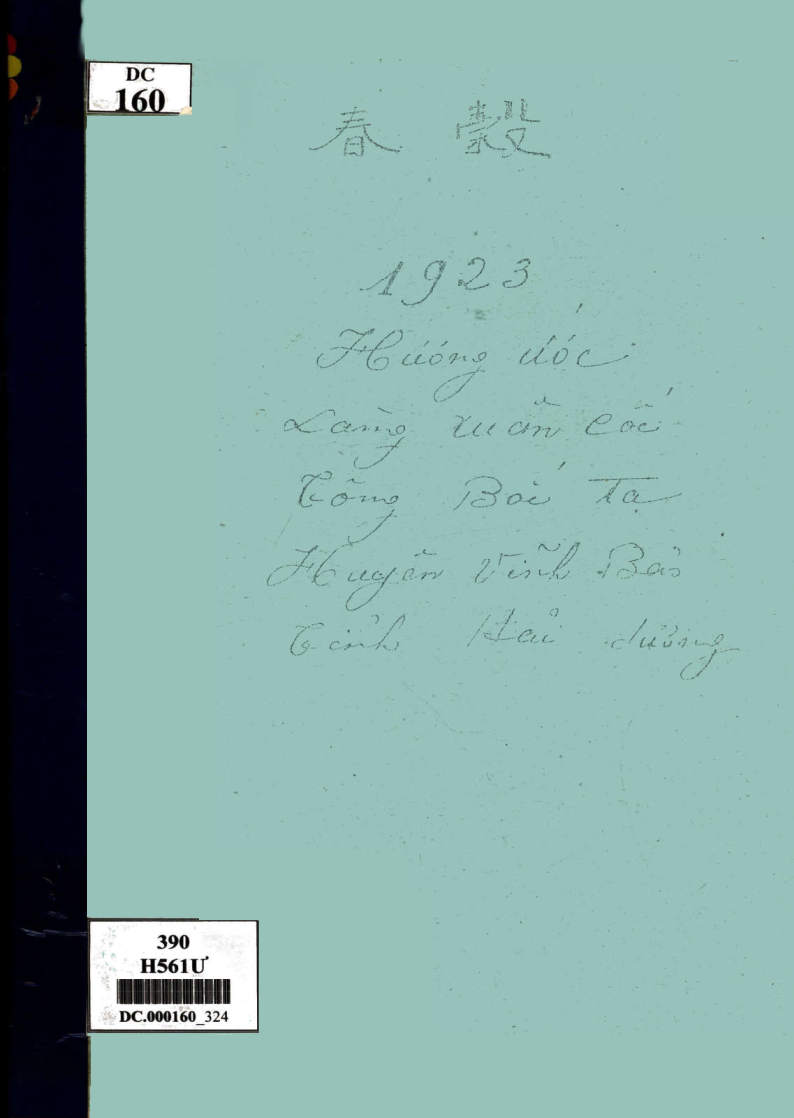 DC
160
春 穀
1923
Hương ước
Làng Xuân Cốc
Tổng Bắc Tạ
Huyện Vĩnh Bảo
Tỉnh Hải dương
390
H561Ư
DC.000160_324